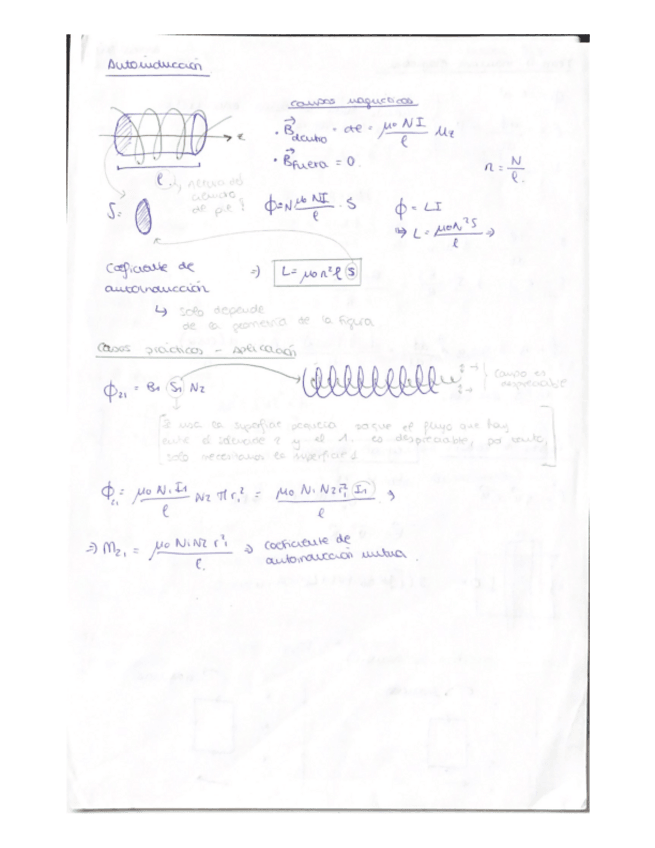 Autoinducción
campos magnéticos
z
• B⃗dentro = cte = μ0 N I / l u_z
• B⃗fuera = 0.
n = N / l
l
S =
ϕ = N μ0 N I / l · S
ϕ = L I
⇒ L = μ0 N² S / l ⇒
Coeficiente de
autoinducción
⇒ L = μ0 n² l S
↳ solo depende
de la geometría de la figura
Casos prácticos - aplicación
ϕ21 = B1 S1 N2
campo es
despreciable
se usa la superficie pequeña ya que el flujo que hay
entre el solenoide 2 y el 1 es despreciable, por tanto,
solo necesitamos la superficie 1
ϕ21 = μ0 N1 I1 / l N2 π r1² = μ0 N1 N2 r1² I1 / l ⇒
⇒ M21 = μ0 N1 N2 r1² / l ⇒ coeficiente de
autoinducción mutua.